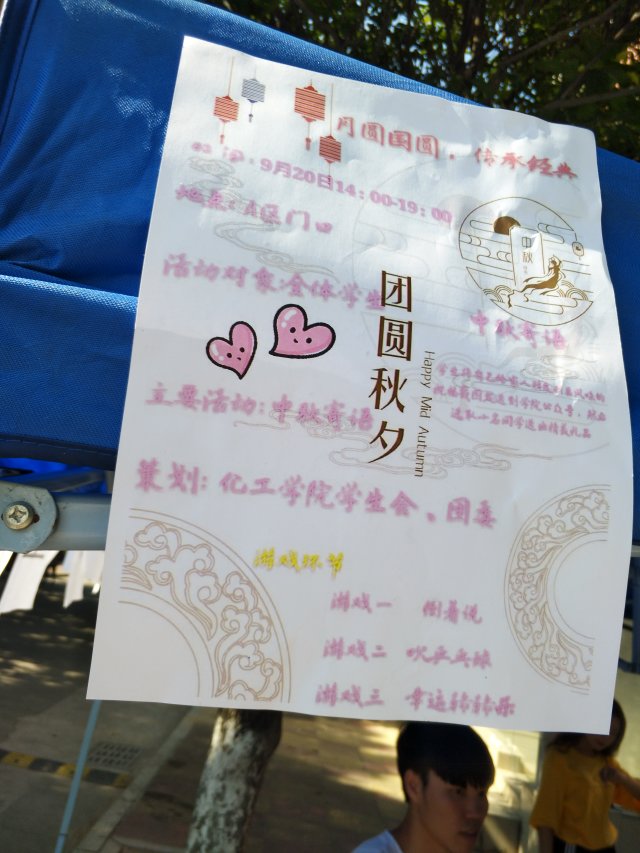 月圆国圆，传承经典
时间：9月20日14：00-19：00
地点：A区门口
活动对象:全体学生
中秋
团圆秋夕
Happy Mid Autumn
中秋寄语
主要活动:中秋寄语
送出精美礼品
策划：化工学院学生会、团委
游戏环节
游戏一 倒着说
游戏二 吹乒乓球
游戏三 幸运转转乐